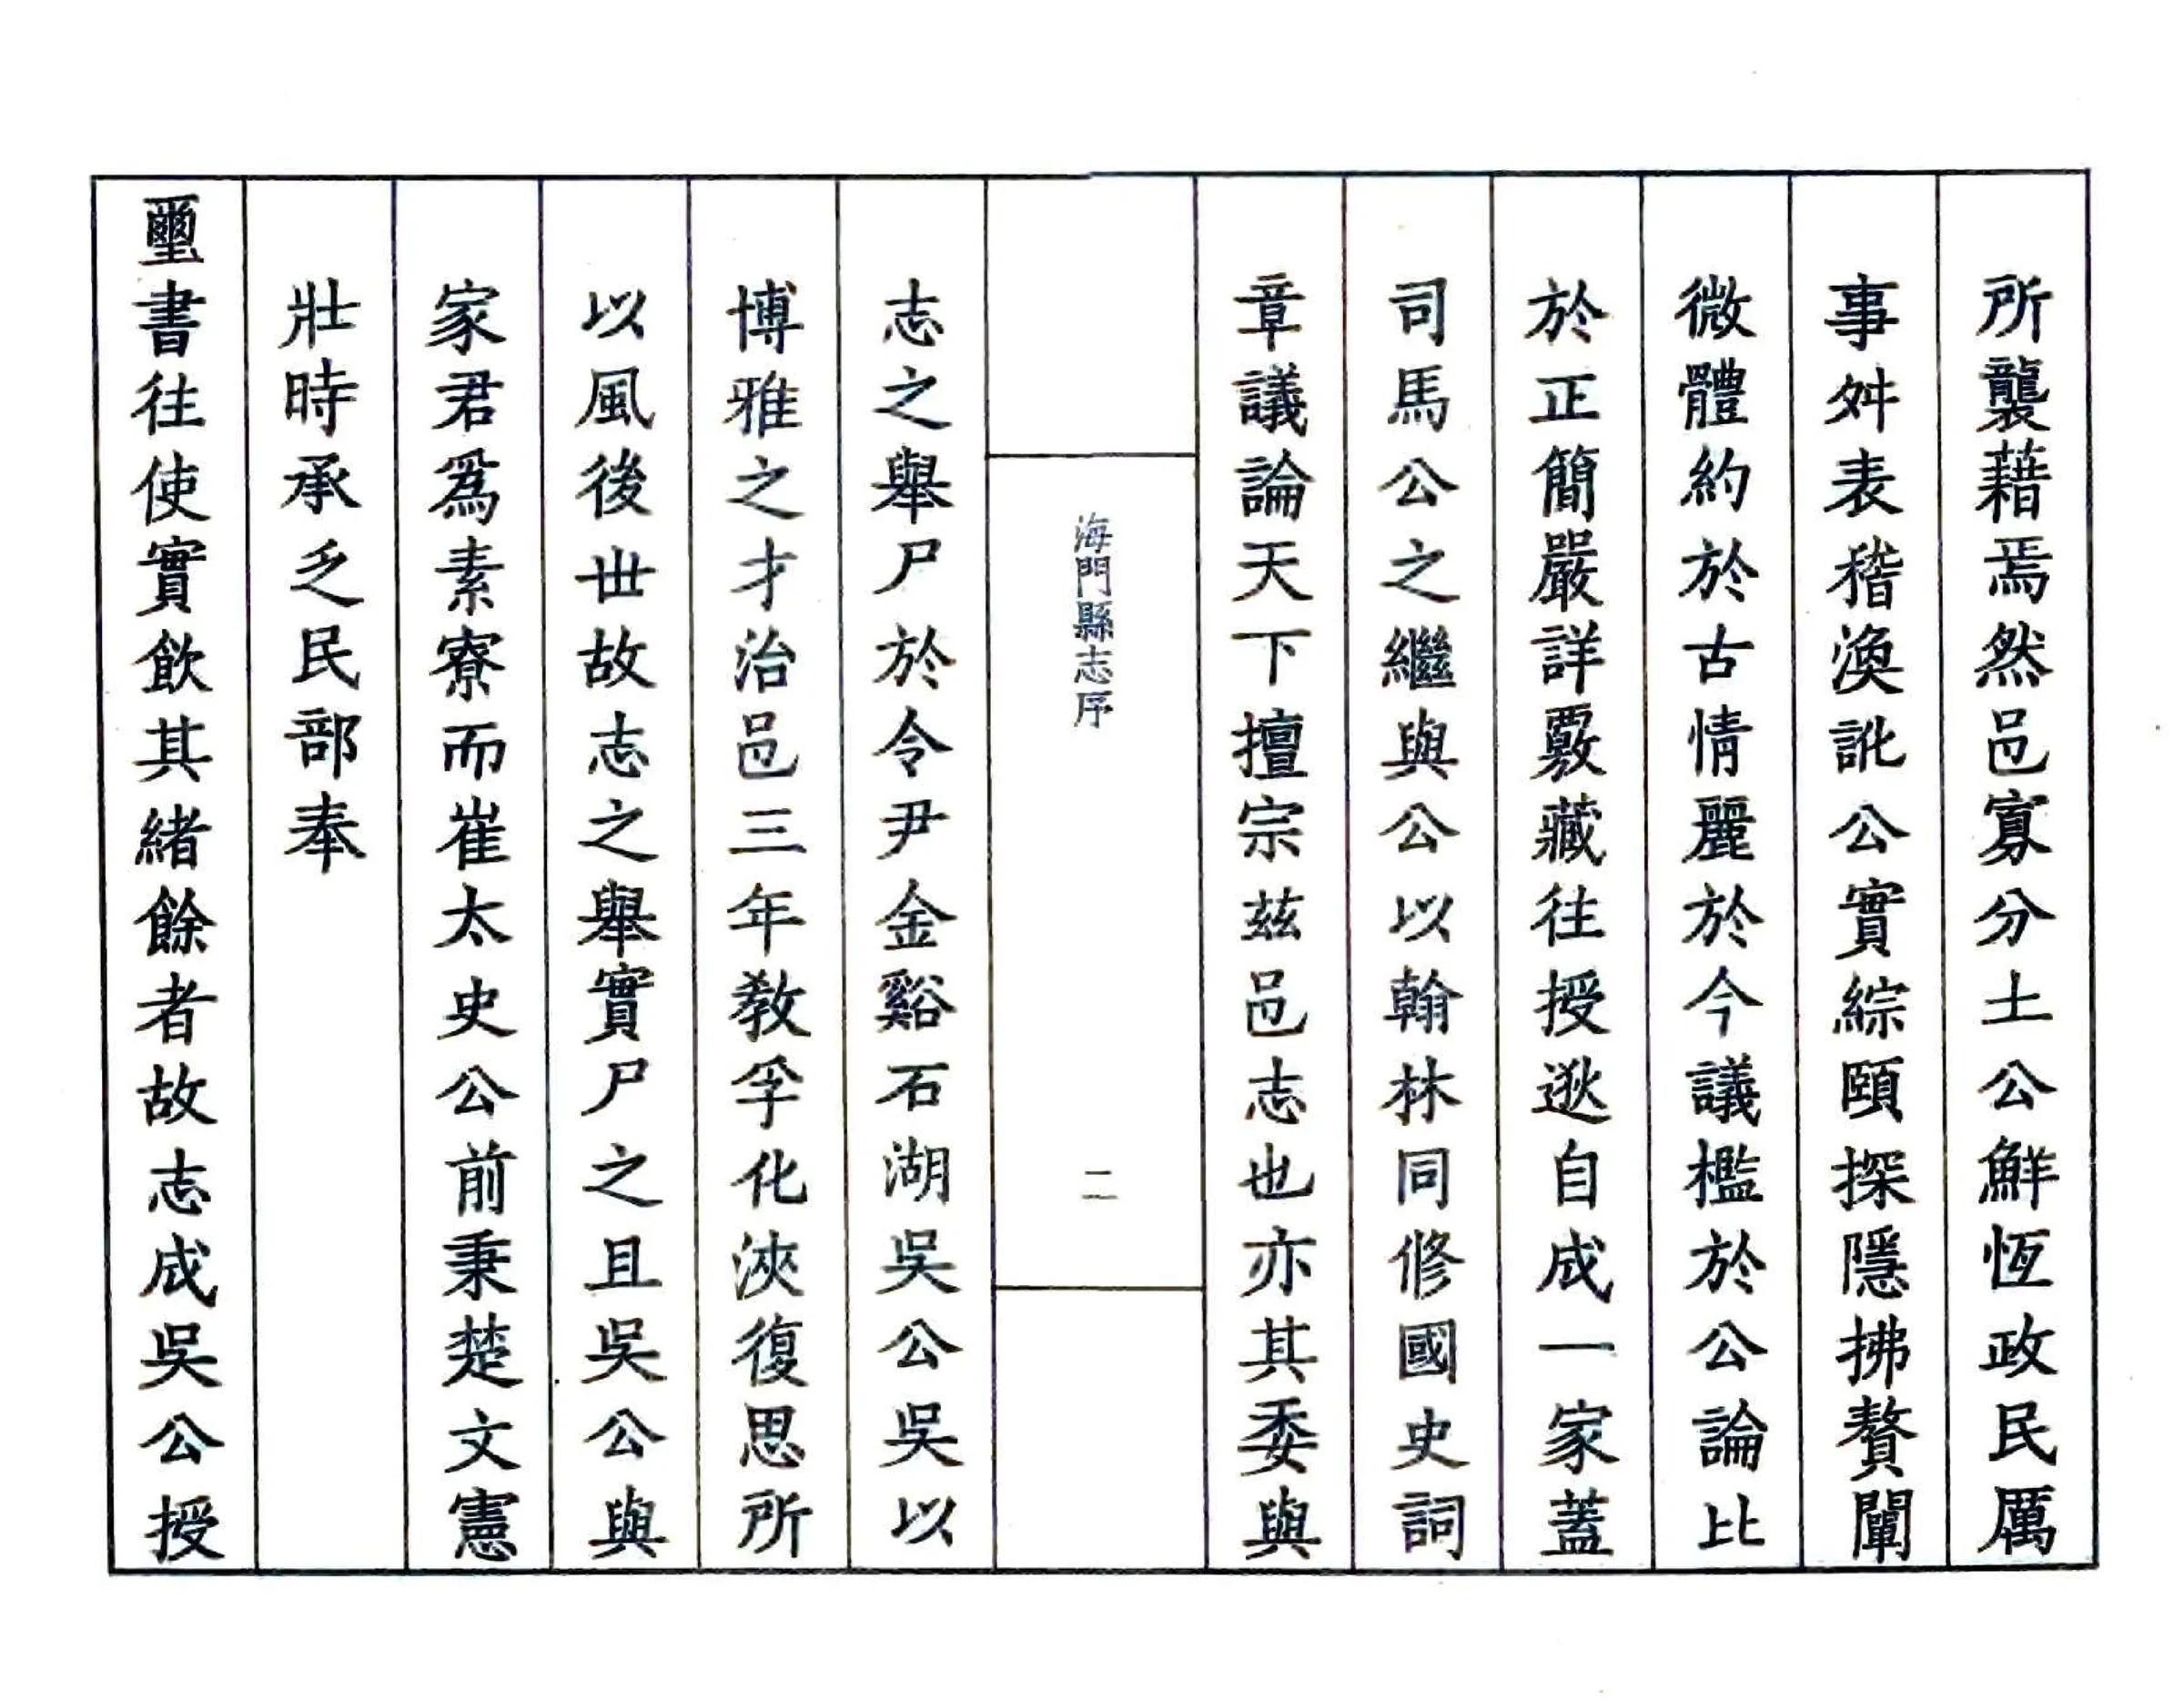 所襲藉焉然邑寡分土公鮮恆政民厲
事舛表稽渙訛公實綜頤探隱拂贅闡
微體約於古情麗於今議檻於公論比
於正簡嚴詳覈藏往授逖自成一家蓋
司馬公之繼與公以翰林同修國史詞
章議論天下擅宗茲邑志也亦其委與
海門縣志序
二
志之舉尸於令尹金谿石湖吳公吳以
博雅之才治邑三年教孚化浹復思所
以風後世故志之舉實尸之且吳公與
家君爲素寮而崔太史公前秉楚文憲
壯時承乏民部奉
璽書往使實飲其緒餘者故志成吳公授